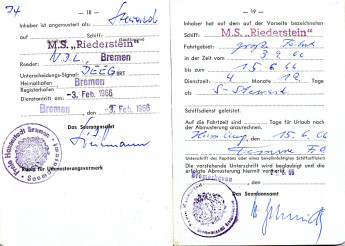 — 18 —
Inhaber ist angemustert als: Steward
Schiff: M.S. „Riederstein"
Reeder: NDL, Bremen
Unterscheidungs-Signal: DEEG BRT
Heimathafen Bremen
Registerhafen
Dienstantritt am: -3. Feb. 1966
Bremen, den 3. Feb. 1966
Das Seemannsamt
Freie Hansestadt Bremen
Seemannsamt
Raum für Ummusterungsvermerk
— 19 —
Inhaber hat auf dem auf der Vorseite bezeichneten
Schiff: M.S. „Riederstein"
Fahrtgebiet: große Fahrt
in der Zeit vom 3.2.66
bis zum 15.6.66
Dienstzeit: 4 Monate 12 Tage
als S-Steward
Schiffsdienst geleistet.
Auf die Fahrtzeit sind Tage für Urlaub nach
der Abmusterung anzurechnen.
Hamburg, 15.6.66
Unterschrift des Kapitäns oder eines bevollmächtigten Schiffsoffiziers
Die vorstehende Unterschrift wird beglaubigt und die
erfolgte Abmusterung hiermit vermerkt.
Bremerhaven, den
Das Seemannsamt